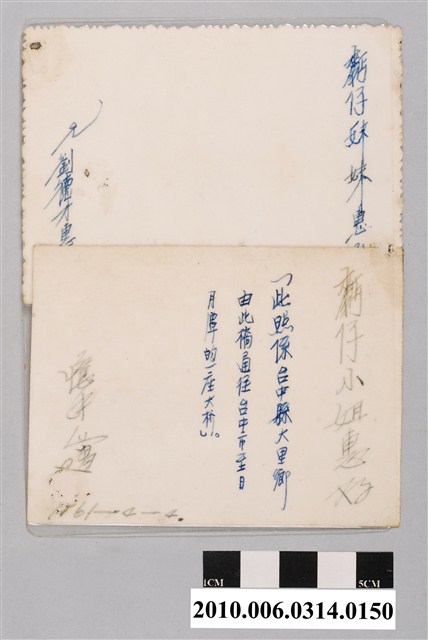 仔妹妹惠
兄
劉德才惠
仔小姐惠存
「此照係台中縣大里鄉
由此橋通往台中市至日
月潭的一座大橋」。
1961-4-4.
1CM
5CM
2010.006.0314.0150